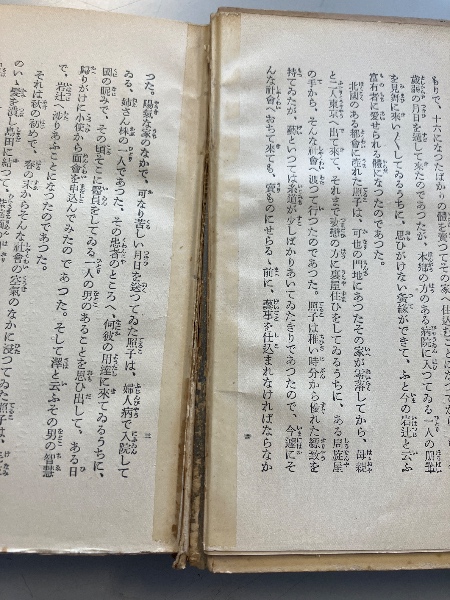 もりで、十六になつたばかりの體を賣つてその家へ仕込
歳話の月日を過して來たのであつたが、木場の方のある病院に入つてゐる一人の朋輩
を見舞に來いくしてゐるうちに、思ひがけない縁ができて、ふと今の岩辻と云ふ
富有者に愛せられる體になつたのであつた。
北國のある都會に売れた照子は、可也の門地にあつたその家が零落してから、母親
と二人東京へ出て來て、それまで築地の方に裏屋住ひをしてゐるうちに、ある周旋屋
の手から、そんな社會へ渡つて行つたのであつた。照子は稚い時分から優れた縹緻を
持てゐたが、藝といつては糸道が少しばかりあいてゐたきりであつたので、今遽にそ
んな社會へおちて來ても、賣ものにせらる丶前に、藝事を仕込まれなければならなか
つた。陽氣な家のなかで、可なり苦しい月日を送つてゐた照子は、婦人病で入院して
ゐる、姉さん株の一人であつた、その患者のところへ、何彼の用達に來てゐるうちに、
國の昵みで、その頃そこに醫員をしてゐる一人の男のあることを思ひ出して、ある日
歸りがけに小使から面會を申込んでみたのであつた。そして澤と云ふその男の智慧
で、岩辻へ渉りあふことになつたのであつた。
それは秋の初めで、春の末からそんな社會の空氣のなかに浸つてゐた照子は、
のい丶髪を
島田に結つて、